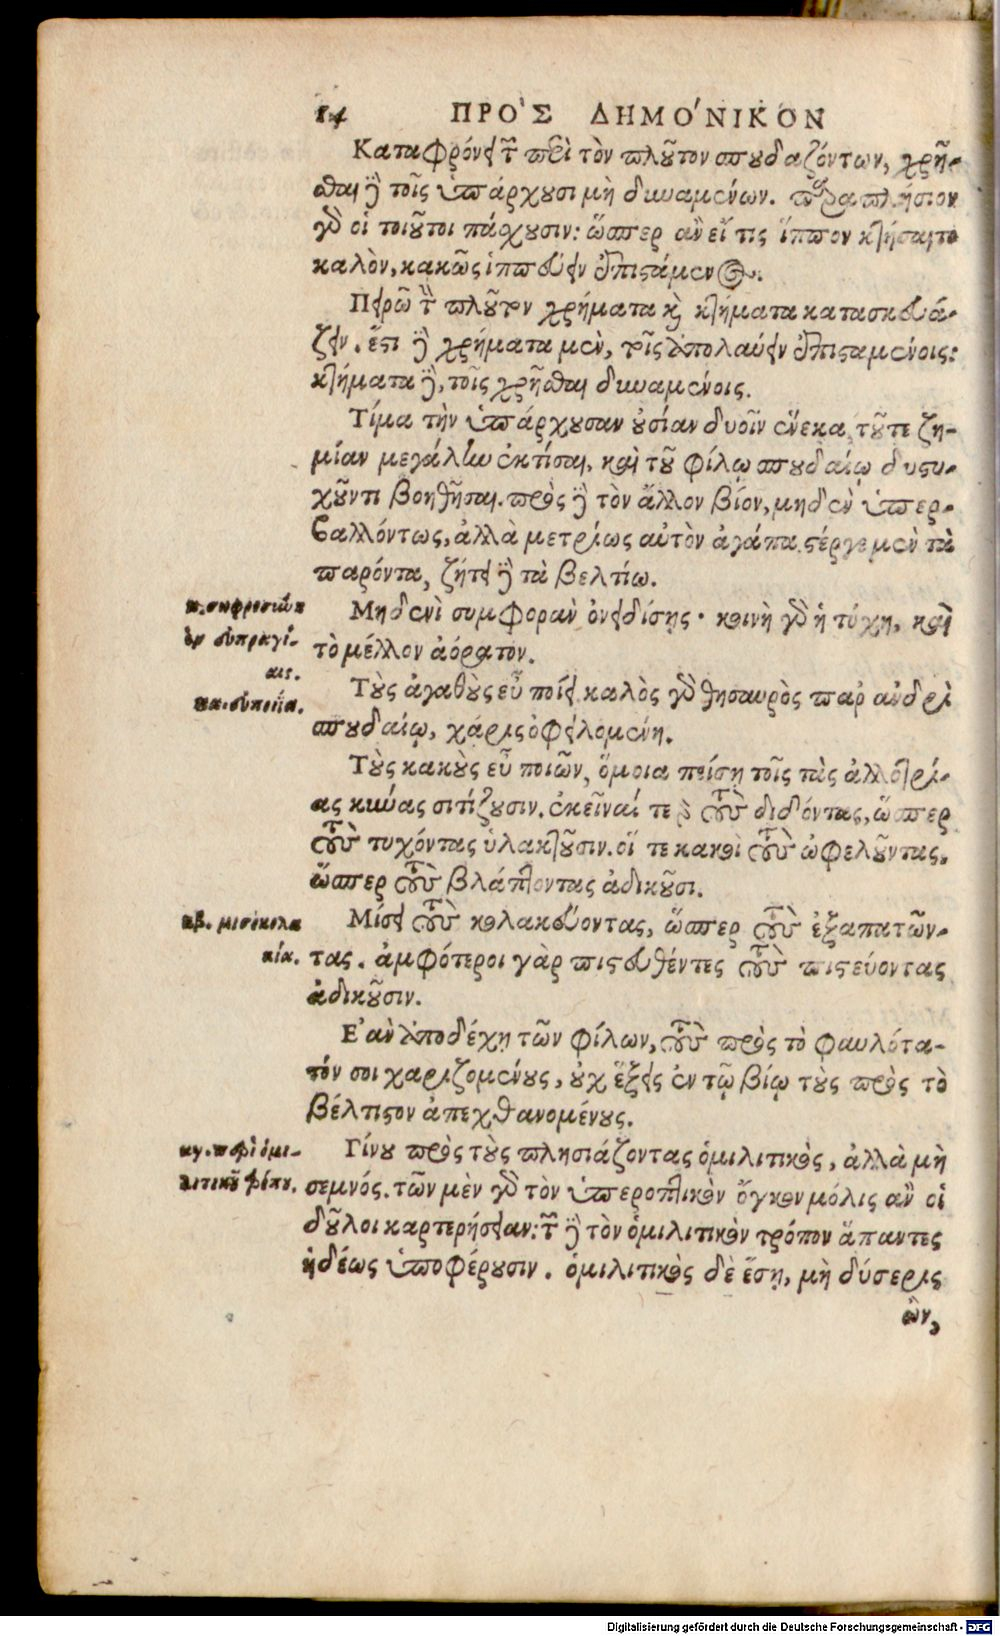 14 ΠΡΟ'Σ ΔΗΜΟ'ΝΙΚΟΝ
Καταφρόνει τῶν περὶ τὸν πλοῦτον σπουδαζόντων, χρῆ-
σθαι δὲ τοῖς ὑπάρχουσι μὴ δυναμένων. παραπλήσιον
γὰρ οἱ τοιοῦτοι πάσχουσιν: ὥσπερ ἂν εἴ τις ἵππον κτήσαιτο
καλὸν, κακῶς ἱππεύειν ἐπιστάμενος.
Πειρῶ τὸν πλοῦτον χρήματα καὶ κτήματα κατασκευά-
ζειν. ἔστι δὲ χρήματα μὲν, τοῖς ἀπολαύειν ἐπισταμένοις:
κτήματα δὲ, τοῖς χρῆσθαι δυναμένοις.
Τίμα τὴν ὑπάρχουσαν οὐσίαν δυοῖν ἕνεκα, τοῦ τε ζη-
μίαν μεγάλην ἐκτίσαι, καὶ τοῦ φίλῳ σπουδαίῳ δυστυ-
χοῦντι βοηθῆσαι. πρὸς δὲ τὸν ἄλλον βίον, μηδὲν ὑπερ-
βαλλόντως, ἀλλὰ μετρίως αὐτὸν ἀγάπα. στέργε μὲν τὰ
παρόντα, ζήτει δὲ τὰ βελτίω.
κ. σωφροσύνη
ἐν δυπραγί-
αις.
Μηδενὶ συμφορὰν ὀνειδίσῃς· κοινὴ γὰρ ἡ τύχη, καὶ
τὸ μέλλον ἀόρατον.
κα. εὐποιία.
Τοὺς ἀγαθοὺς εὖ ποίει καλὸς γὰρ θησαυρὸς παρ' ἀνδρὶ
σπουδαίῳ, χάρις ὀφειλομένη.
Τοὺς κακοὺς εὖ ποιῶν, ὅμοια πείσῃ τοῖς τὰς ἀλλοτρί-
ας κύνας σιτίζουσιν. ἐκεῖναί τε γὰρ τοὺς διδόντας, ὥσπερ
τοὺς τυχόντας ὑλακτοῦσιν. οἵ τε κακοὶ τοὺς ὠφελοῦντας,
ὥσπερ τοὺς βλάπτοντας ἀδικοῦσι.
κβ. μισοκολα
κία.
Μίσει τοὺς κολακεύοντας, ὥσπερ τοὺς ἐξαπατῶν-
τας. ἀμφότεροι γὰρ πιστευθέντες τοὺς πιστεύοντας
ἀδικοῦσιν.
Ε'ὰν ἀποδέχῃ τῶν φίλων, τοὺς πρὸς τὸ φαυλότα-
τόν σοι χαριζομένους, οὐχ ἕξεις ἐν τῷ βίῳ τοὺς πρὸς τὸ
βέλτιστον ἀπεχθανομένους.
κγ. περὶ ὁμι-
λιτικοῦ τρόπου.
Γίνου πρὸς τοὺς πλησιάζοντας ὁμιλιτικὸς, ἀλλὰ μὴ
σεμνός. τῶν μὲν γὰρ τὸν ὑπεροπτικὸν ὄγκον μόλις ἂν οἱ
δοῦλοι καρτερήσειαν: τῶν δὲ τὸν ὁμιλιτικὸν τρόπον ἅπαντες
ἡδέως ὑποφέρουσιν. ὁμιλιτικὸς δὲ ἔσῃ, μὴ δύσερις
ὢν,
Digitalisierung gefördert durch die Deutsche Forschungsgemeinschaft - DFG